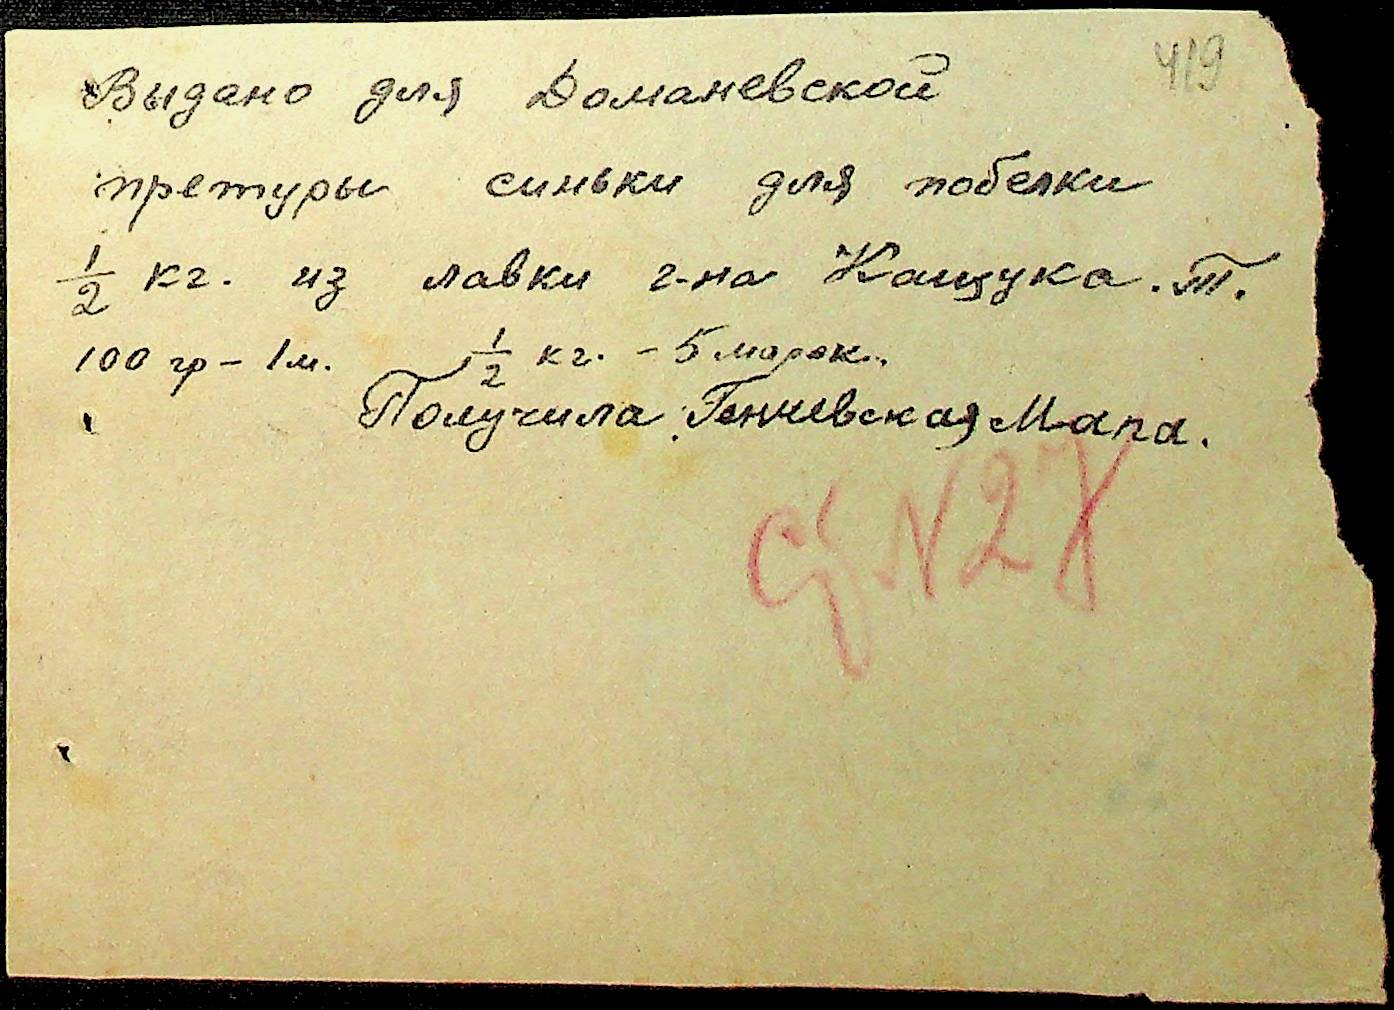 419
Выдано для Доманевской
претуры синьки для побелки
1/2 кг. из лавки г-на Кащука. Т.
100 гр – 1 м. 1/2 кг. – 5 марок.
Получила Генчевская Мара.
N 27